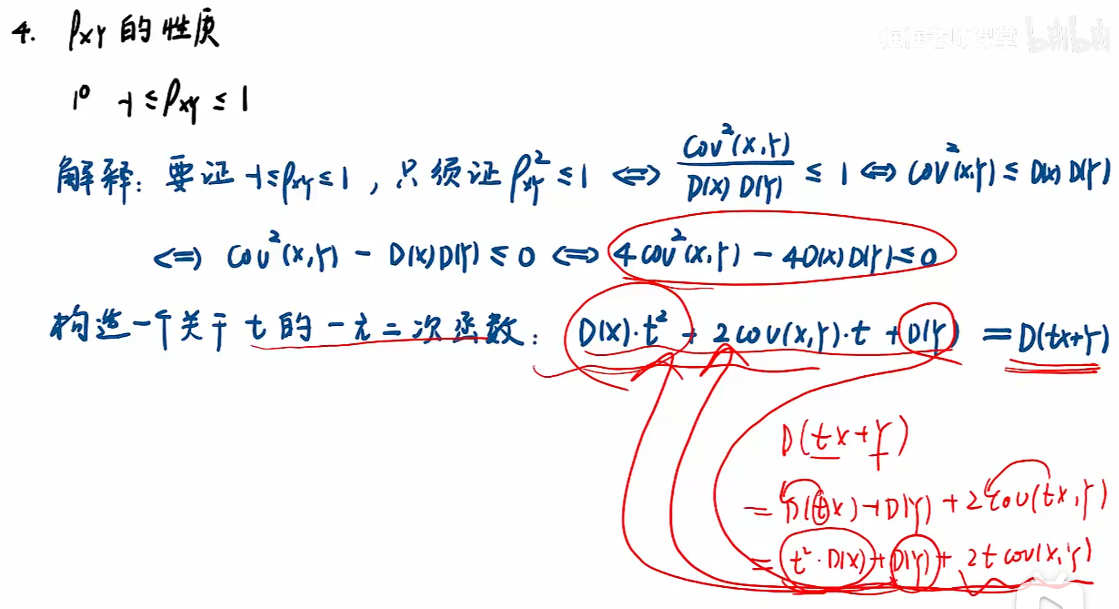 4. ρxy 的性质
1° -1 ≤ ρxy ≤ 1
解释: 要证 -1≤ρxy≤1, 只须证 ρ²xy ≤ 1 <=> Cov²(X,Y) / D(X) D(Y) ≤ 1 <=> Cov²(X,Y) ≤ D(X) D(Y)
<=> Cov²(X,Y) - D(X)D(Y) ≤ 0 <=> 4Cov²(X,Y) - 4D(X)D(Y) ≤ 0
构造一个关于 t 的一元二次函数: D(X)·t² + 2Cov(X,Y)·t + D(Y) = D(tX+Y)
D(tX+Y)
= D(tX)+D(Y) + 2Cov(tX,Y)
= t²·D(X)+D(Y) + 2t Cov(X,Y)
bilibili